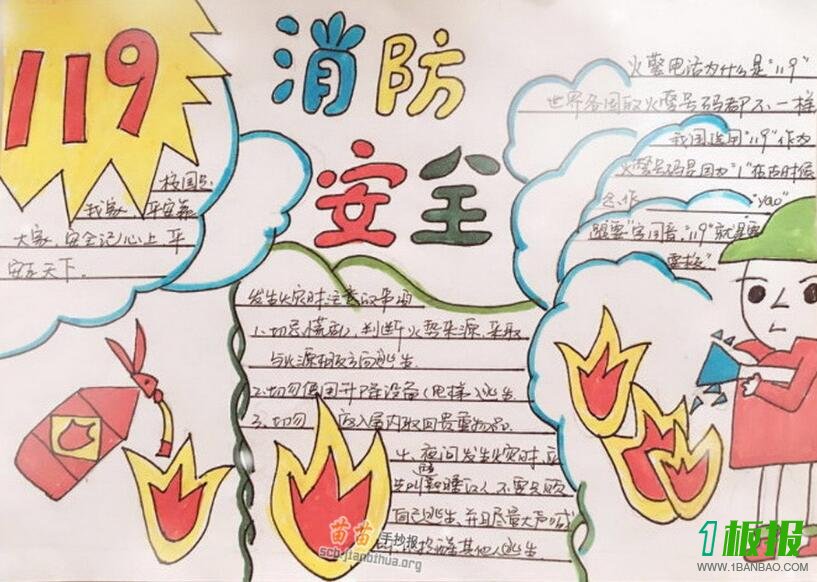 119
消防
安全
校园是
我家，平安靠
大家，安全记心上，平
安在天下.
火警电话为什么是"119"
世界各国取火警号码都不一样
我国选用"119"作为
火警号码是因为"1"在古时候
念作"yao"
跟"要"字同音，"119"就是"要
要救"
发生火灾时注意的事项
1.切忌慌乱，判断火势来源，采取
与火源相反方向逃生
2.切勿使用升降设备(电梯)逃生
3、切勿 返入屋内取回贵重物品.
4、夜间发生火灾时，应
先叫醒熟睡的人，不要只顾
自己逃生，并且尽量大声喊
其他人逃生.
苗苗手抄报
scb-jianbihua.org
1板报
WWW.1BANBAO.COM